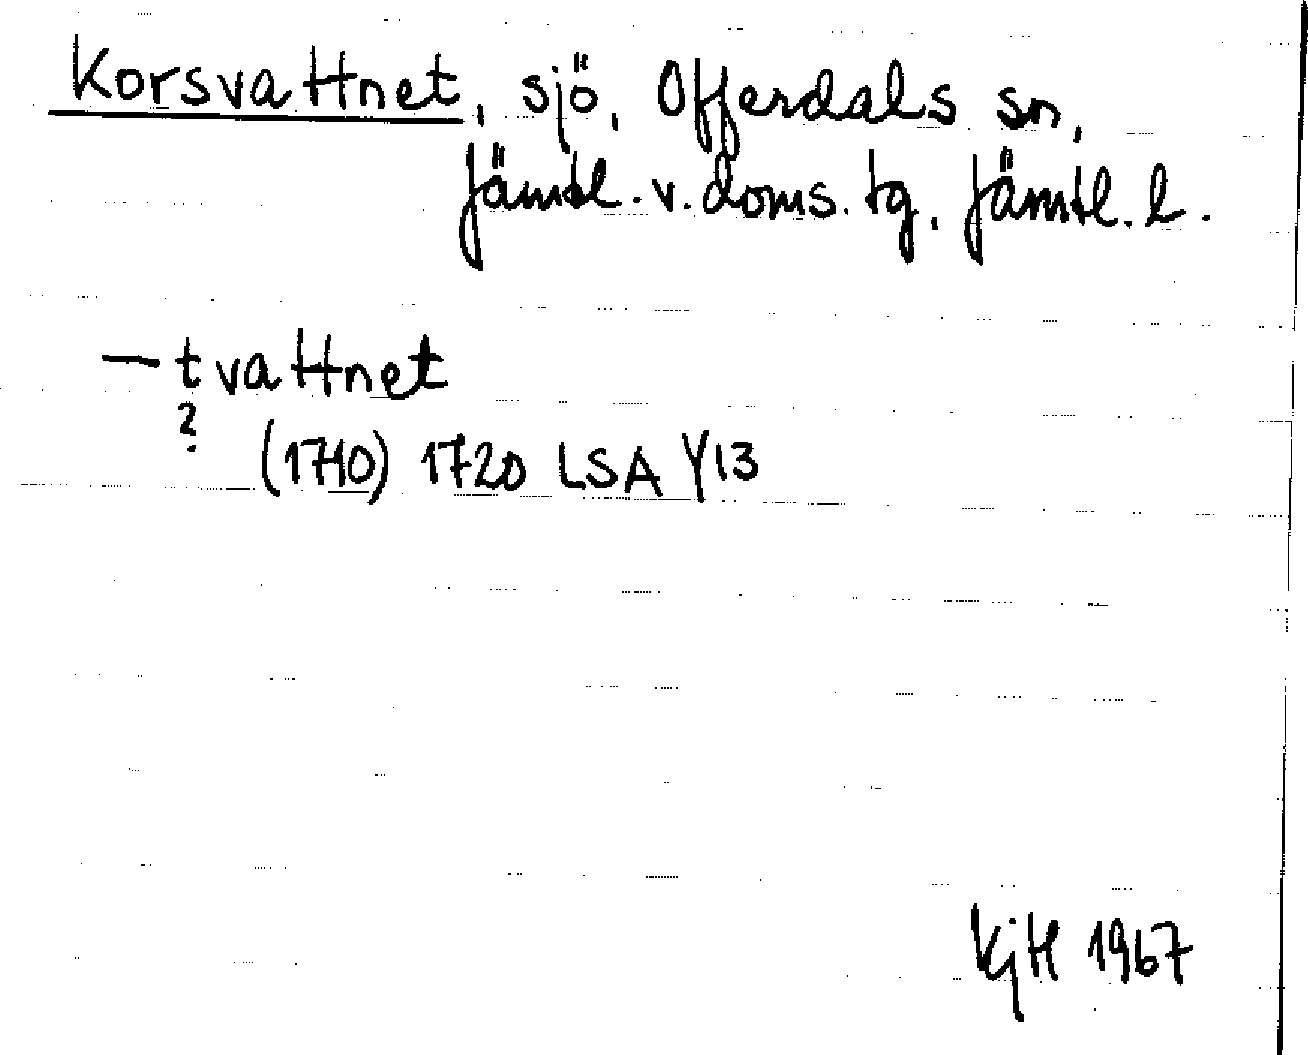 Korsvattnet, sjö, Offerdals sn,
Jämtl. v. doms. tg, Jämtl. l.
— tvattnet
?
(1710) 1720 LSA Y13
KjH 1967